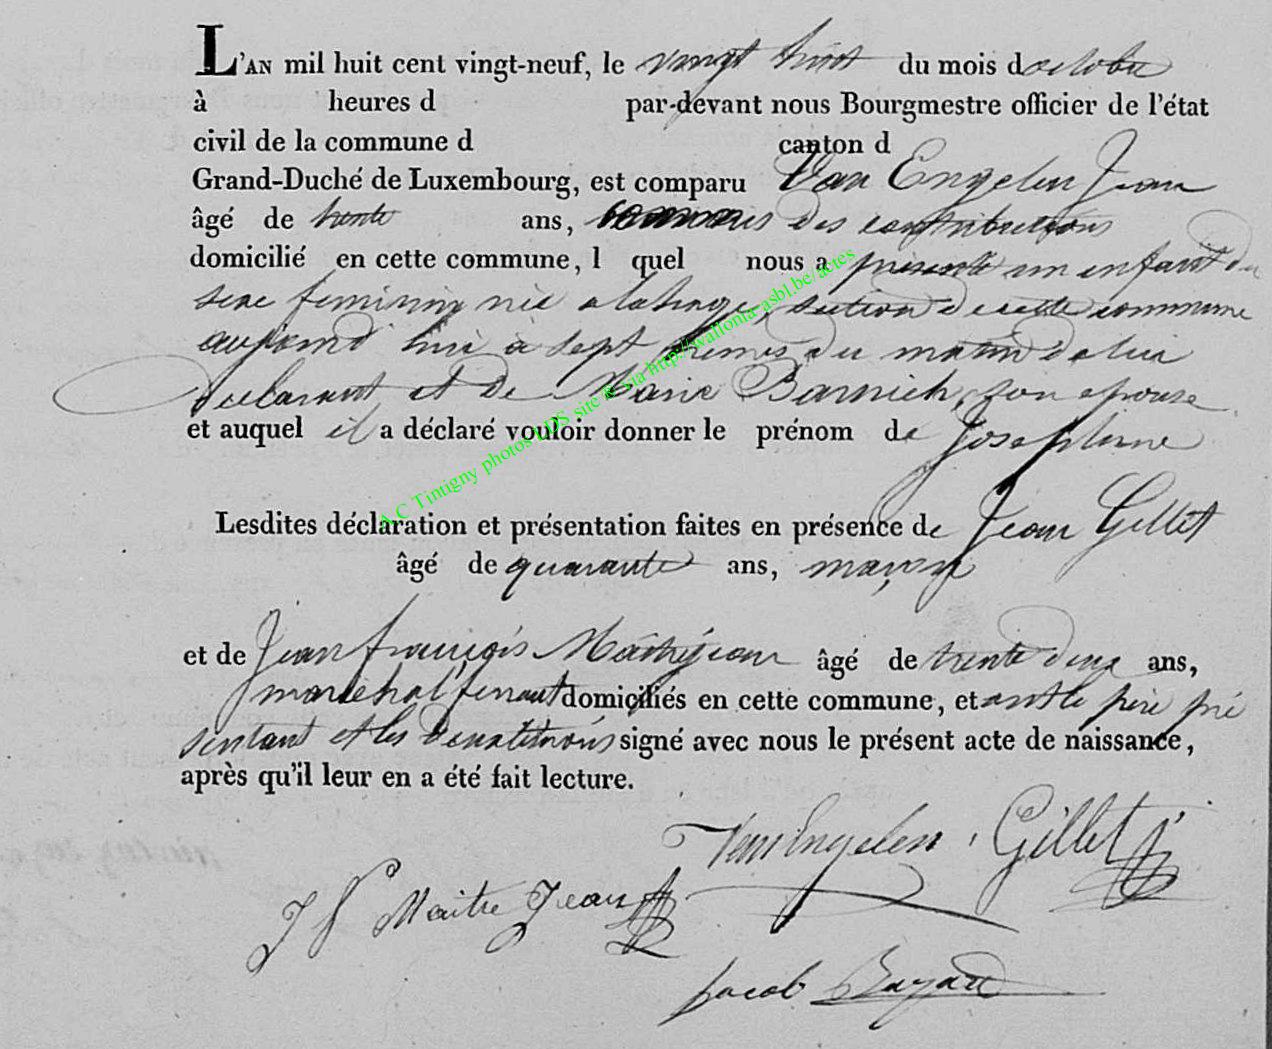 L'AN mil huit cent vingt-neuf, le vingt huit du mois doctobre
à heures d par-devant nous Bourgmestre officier de l'état
civil de la commune d canton d
Grand-Duché de Luxembourg, est comparu Van Engelen Jean
âgé de trente ans, des contributions
domicilié en cette commune, l quel nous a présenté un enfant du
sexe feminin née a lahage, section de cette commune
aujourd hui à sept heures du matin de lui
declarant et de Marie Barnich, son epouse
et auquel il a déclaré vouloir donner le prénom de Josephine
Lesdites déclaration et présentation faites en présence de Jean Gillet
âgé de quarante ans, maçon
et de Jean françois Maitrejean âgé de trente deux ans,
marechal ferrant domiciliés en cette commune, et ont le père pré
sentant et les deux témoins signé avec nous le présent acte de naissance,
après qu'il leur en a été fait lecture.
Van Engelen Gillet
J f Maitre Jean
Jacob
A.C Tintigny photos LDS site & via http://wallonia-asbl.be/actes